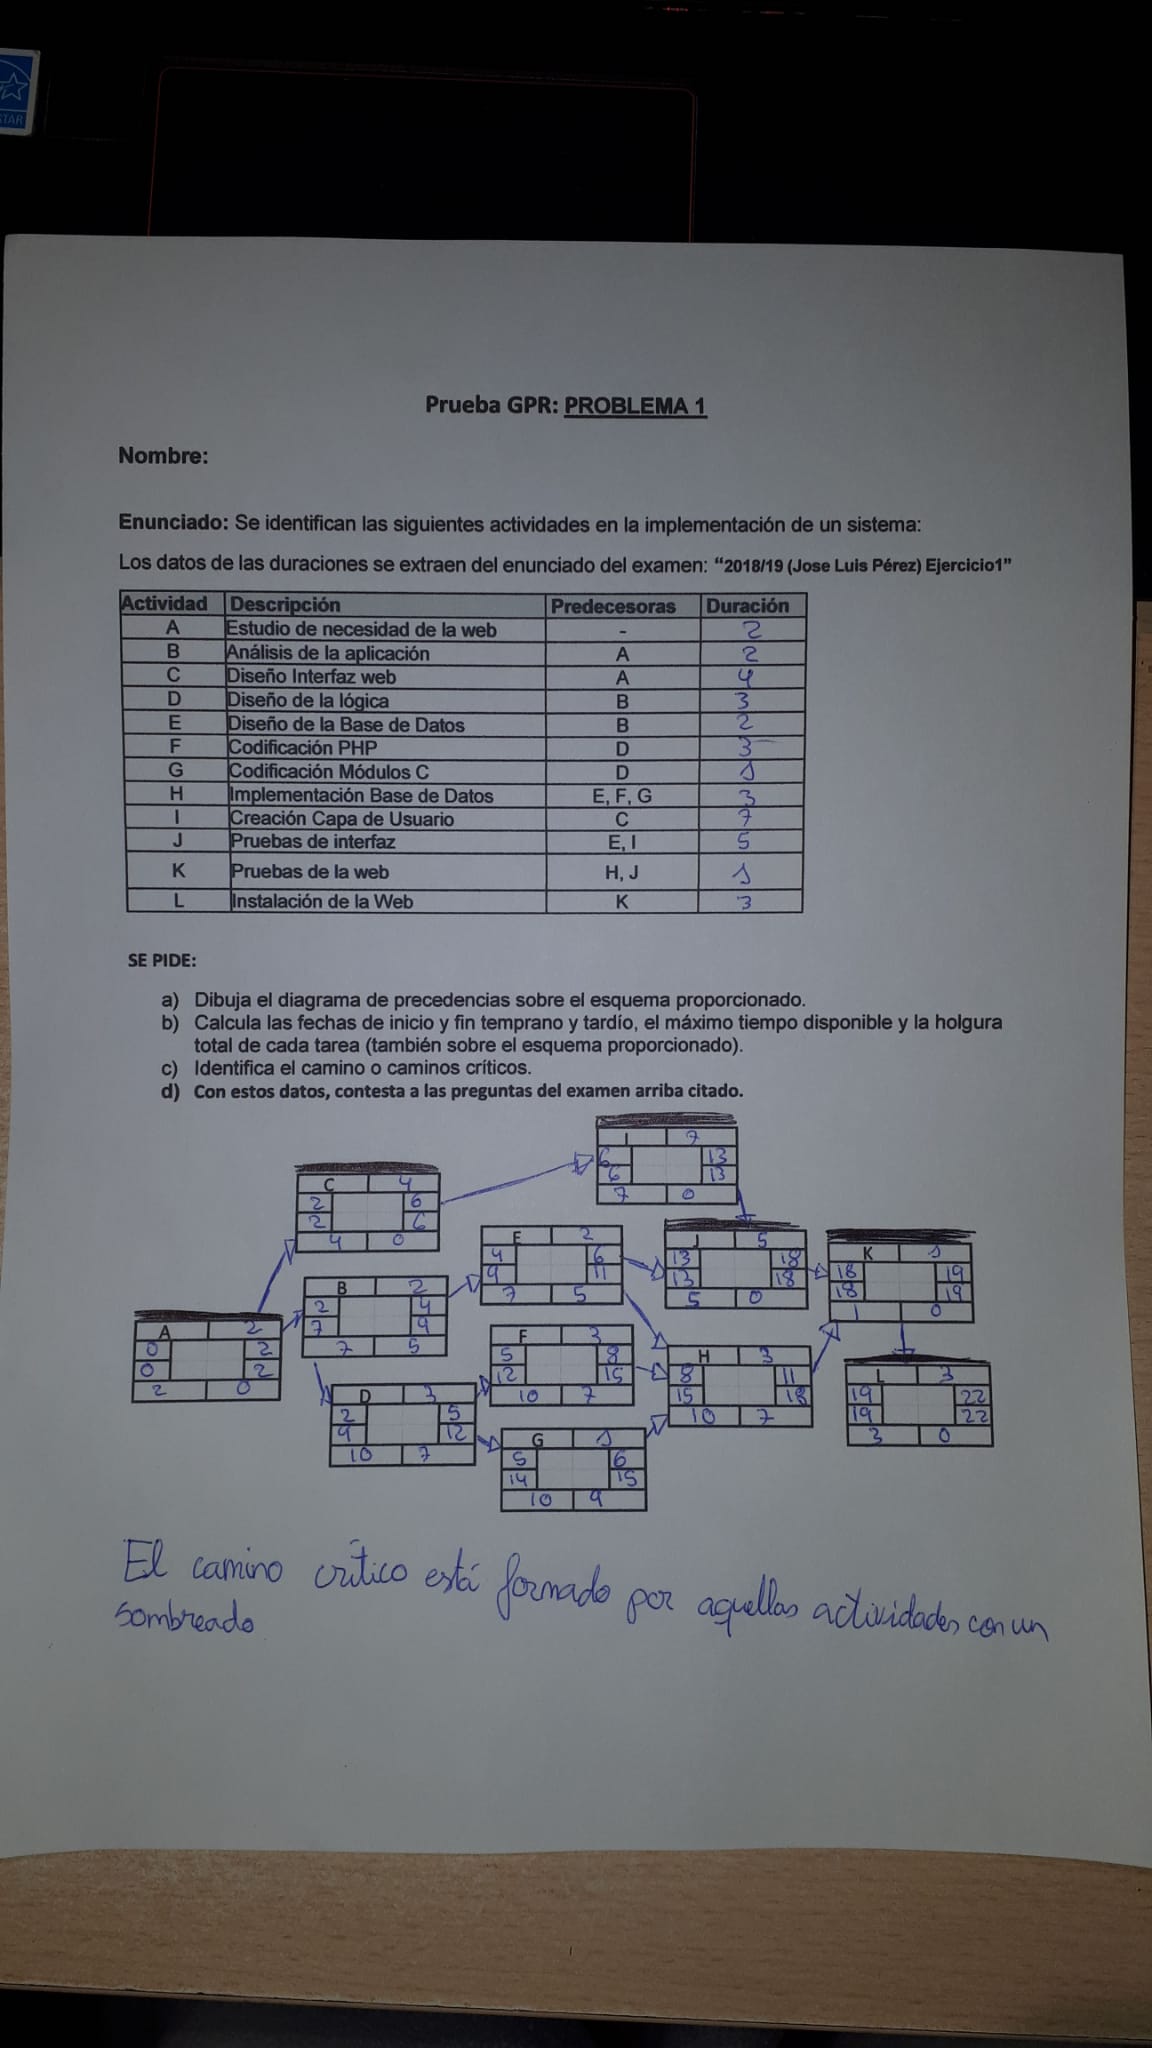 STAR
Prueba GPR: PROBLEMA 1
Nombre:
Enunciado: Se identifican las siguientes actividades en la implementación de un sistema:
Los datos de las duraciones se extraen del enunciado del examen: “2018/19 (Jose Luis Pérez) Ejercicio1”
Actividad Descripción Predecesoras Duración
A Estudio de necesidad de la web - 2
B Análisis de la aplicación A 2
C Diseño Interfaz web A 4
D Diseño de la lógica B 3
E Diseño de la Base de Datos B 2
F Codificación PHP D 3
G Codificación Módulos C D 1
H Implementación Base de Datos E, F, G 3
I Creación Capa de Usuario C 7
J Pruebas de interfaz E, I 5
K Pruebas de la web H, J 1
L Instalación de la Web K 3
SE PIDE:
a) Dibuja el diagrama de precedencias sobre el esquema proporcionado.
b) Calcula las fechas de inicio y fin temprano y tardío, el máximo tiempo disponible y la holgura
total de cada tarea (también sobre el esquema proporcionado).
c) Identifica el camino o caminos críticos.
d) Con estos datos, contesta a las preguntas del examen arriba citado.
I 7
6 13
6 13
7 0
C 4
2 6
2 6
4 0
E 2
4 6
9 11
7 5
J 5
13 18
13 18
5 0
K 1
18 19
18 19
1 0
B 2
2 4
7 9
7 5
A 2
0 2
0 2
2 0
F 3
5 8
12 15
10 7
H 3
8 11
15 18
10 7
L 3
19 22
19 22
3 0
D 3
2 5
9 12
10 7
G 1
5 6
14 15
10 9
El camino crítico está formado por aquellas actividades con un
sombreado